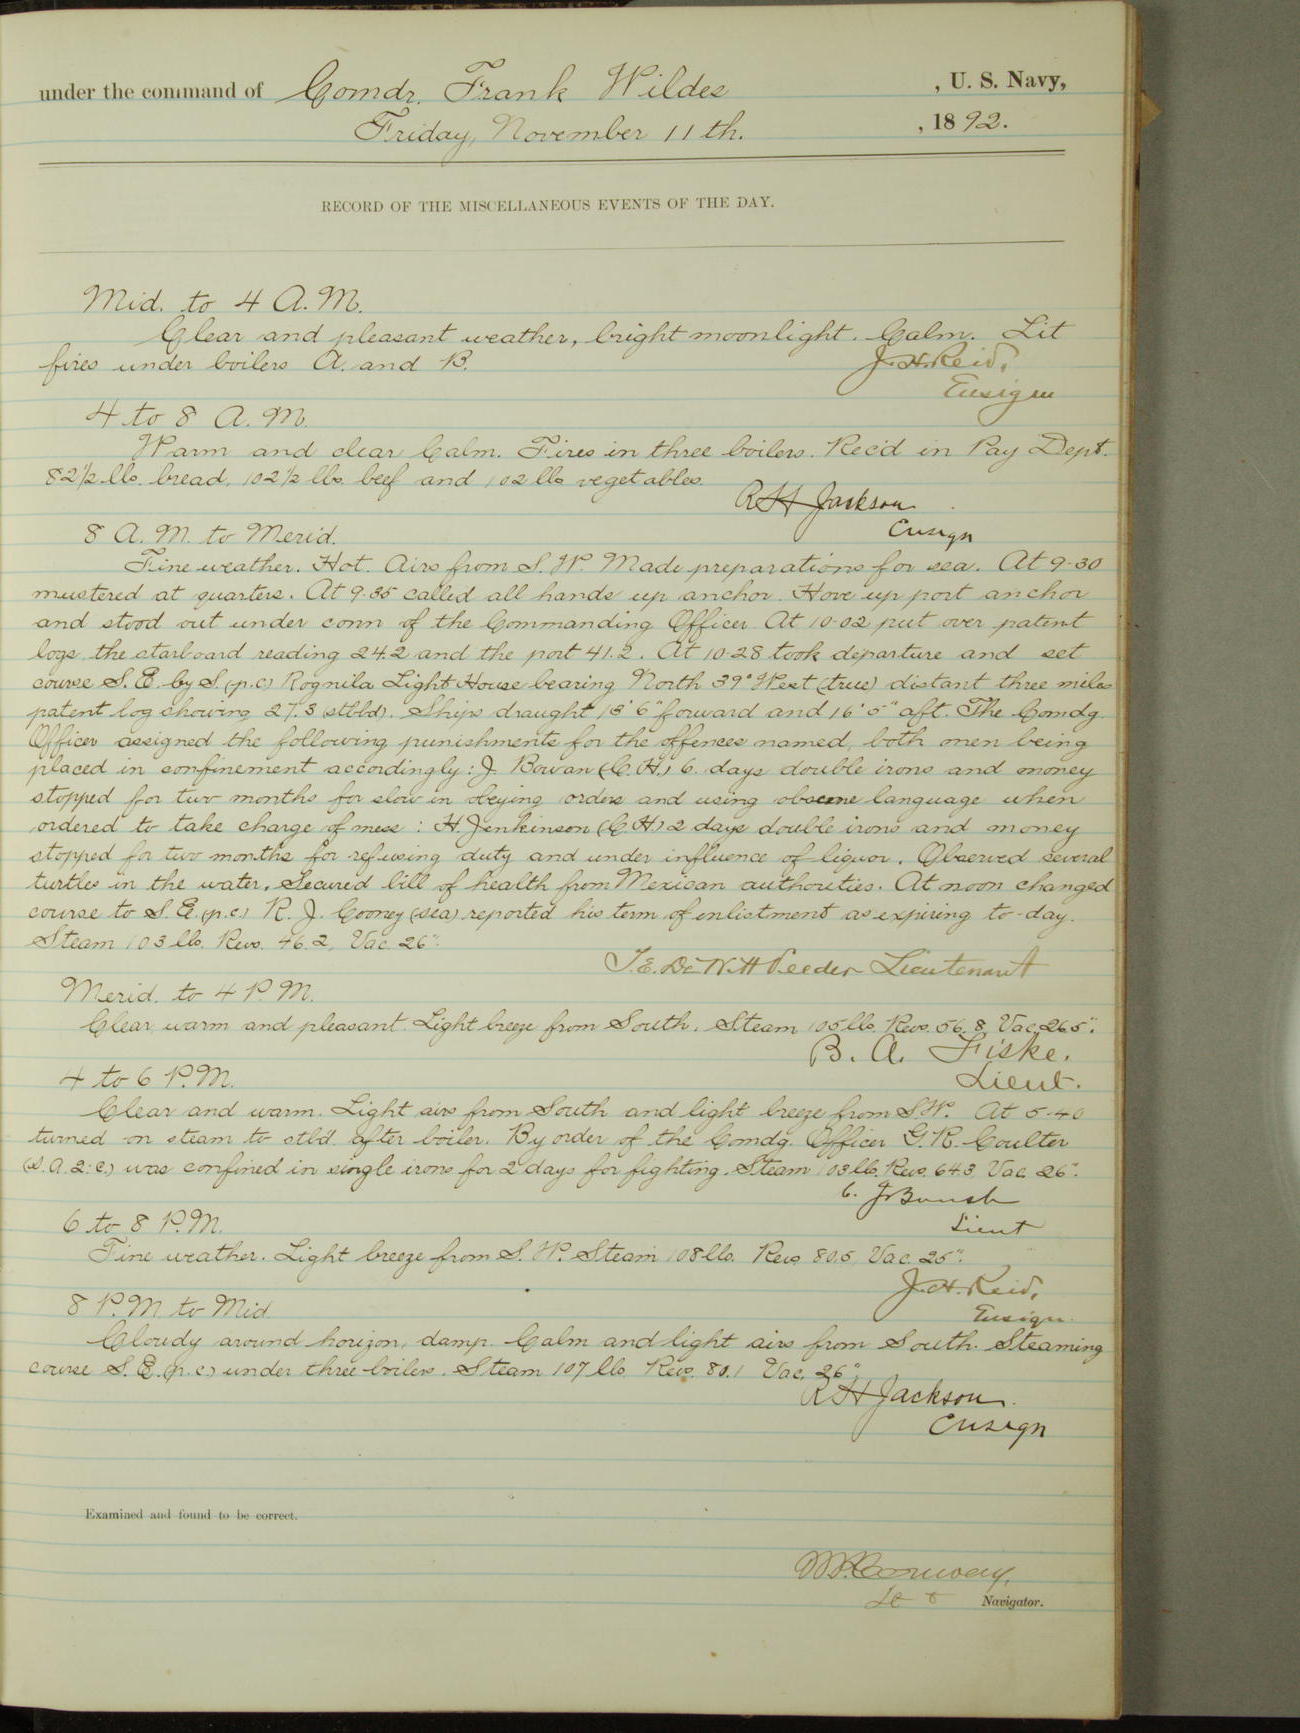 under the command of Comdr. Frank Wildes , U. S. Navy,
Friday, November 11th. , 1892.
RECORD OF THE MISCELLANEOUS EVENTS OF THE DAY.
Mid. to 4 A.M.
Clear and pleasant weather, bright moonlight. Calm. Lit
fires under boilers A. and B.
J.H. Reid,
Ensign
4 to 8 A.M.
Warm and clear Calm. Fires in three boilers. Rec'd in Pay Dept.
82½ lbs. bread, 102½ lbs. beef and 102 lbs vegetables.
R H Jackson
Ensign
8 A.M. to Merid.
Fine weather. Hot. Airs from S.W. Made preparations for sea. At 9-30
mustered at quarters. At 9-35 called all hands up anchor. Hove up port anchor
and stood out under conn of the Commanding Officer At 10-02 put over patent
logs, the starboard reading 24.2 and the port 41.2. At 10-28 took departure and set
course S.E. by S. (p.c) Roqnita Light House bearing North 39° West (true) distant three miles
patent log showing 27.3 (stbd). Ships draught 13' 6" forward and 16' 5" aft. The Comdg.
Officer assigned the following punishments for the offences named, both men being
placed in confinement accordingly: J. Bowan (C.H.) 6 days double irons and money
stopped for two months for slow in obeying orders and using obscene language when
ordered to take charge of mess: H. Jenkinson (C.H.) 2 days double irons and money
stopped for two months for refusing duty and under influence of liquor. Observed several
turtles in the water. Secured bill of health from Mexican authorities. At noon changed
course to S.E. (p.c.) R. J. Cooney (sea) reported his term of enlistment as expiring to-day.
Steam 103 lbs. Revs. 46.2, Vac. 26".
T.E. DeWitt Veeder Lieutenant
Merid. to 4 P.M.
Clear, warm and pleasant. Light breeze from South. Steam 105 lbs. Revs. 56.8, Vac. 26.5".
B. A. Fiske.
Lieut.
4 to 6 P.M.
Clear and warm. Light airs from South and light breeze from S.W. At 5-40
turned on steam to stbd. after boiler. By order of the Comdg. Officer G.R. Coulter
(S.A. 2: C.) was confined in single irons for 2 days for fighting. Steam 103 lbs, Revs. 64.3, Vac. 26".
Lieut
6 to 8 P.M.
Fine weather. Light breeze from S.W. Steam 108 lbs. Revs 80.5, Vac. 25".
J.H. Reid,
Ensign.
8 P.M. to Mid.
Cloudy around horizon, damp. Calm and light airs from South. Steaming
course S.E. (p.c) under three boilers. Steam 107 lbs. Revs. 80.1 Vac. 26".
R H Jackson.
Ensign
Examined and found to be correct.
Navigator.